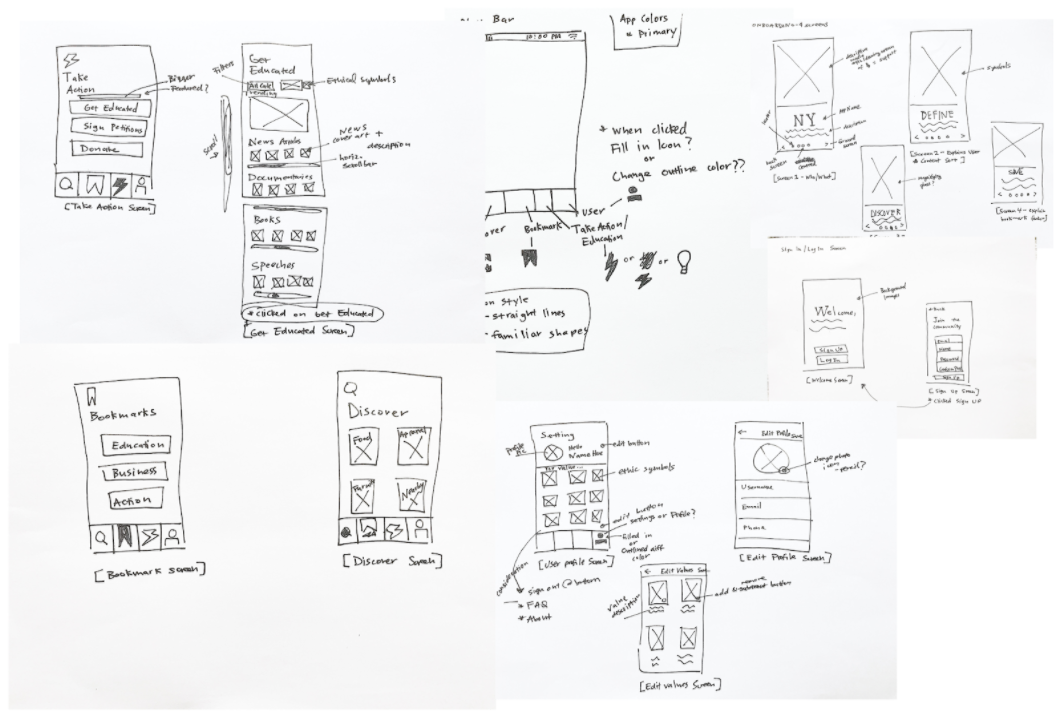 Take
Action
Bigger
Featured?
Get Educated
Sign Petitions
Donate
[Take Action Screen]
Get
Educated
Filters
Ethical symbols
Scroll
News
cover art +
description
horiz.
Scrollbar
Documentaries
Books
Speeches
*clicked on Get Educated
[Get Educated Screen]
Bar
10:00 PM
App Colors
Primary
* When clicked
Fill in Icon?
or
Change outline color??
User
Bookmark
Take Action/
Education
or
or
on style
- straight lines
- familiar shapes
ONBOARDING - 4 screens
NY
App Name
DEFINE
symbols
DISCOVER
SAVE
Sign in/Log In Screen
Welcome,
Background
Images
Sign Up
Log In
[Welcome Screen]
Back
Join the
community
Email
Sign Up
[Sign Up Screen]
*Clicked Sign UP
Bookmarks
Education
Business
Action
[Bookmark screen]
Discover
Food
Apparel
Nearby
[Discover Screen]
Setting
Hello
edit button
Profile
Pic
ethic symbols
edit button
settings or Profile?
filled in
or
Outlined diff
color
[User profile Screen]
consideration
* sign out @ bottom
* FAQ
* About
← Edit Profile Save
change photo
icon
-pencil?
Username
Email
Phone
[Edit Profile Screen]
← Edit Values
value
description
[Edit values Screen]